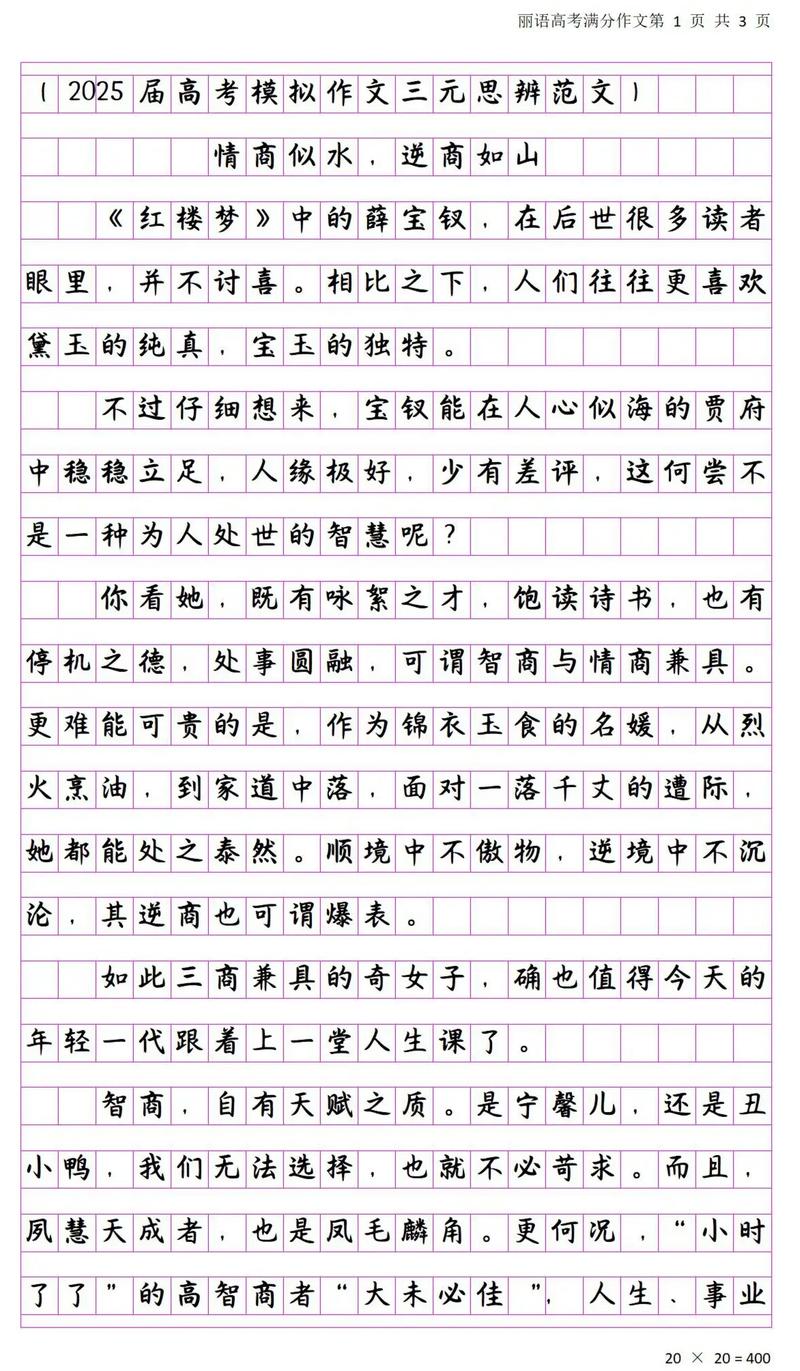 丽语高考满分作文第 1 页 共 3 页
（2025届高考模拟作文三元思辨范文）
情商似水，逆商如山
《红楼梦》中的薛宝钗，在后世很多读者
眼里，并不讨喜。相比之下，人们往往更喜欢
黛玉的纯真，宝玉的独特。
不过仔细想来，宝钗能在人心似海的贾府
中稳稳立足，人缘极好，少有差评，这何尝不
是一种为人处世的智慧呢？
你看她，既有咏絮之才，饱读诗书，也有
停机之德，处事圆融，可谓智商与情商兼具。
更难能可贵的是，作为锦衣玉食的名媛，从烈
火烹油，到家道中落，面对一落千丈的遭际，
她都能处之泰然。顺境中不傲物，逆境中不沉
沦，其逆商也可谓爆表。
如此三商兼具的奇女子，确也值得今天的
年轻一代跟着上一堂人生课了。
智商，自有天赋之质。是宁馨儿，还是丑
小鸭，我们无法选择，也就不必苛求。而且，
夙慧天成者，也是凤毛麟角。更何况，“小时
了了”的高智商者“大未必佳”，人生、事业
20 × 20 = 400